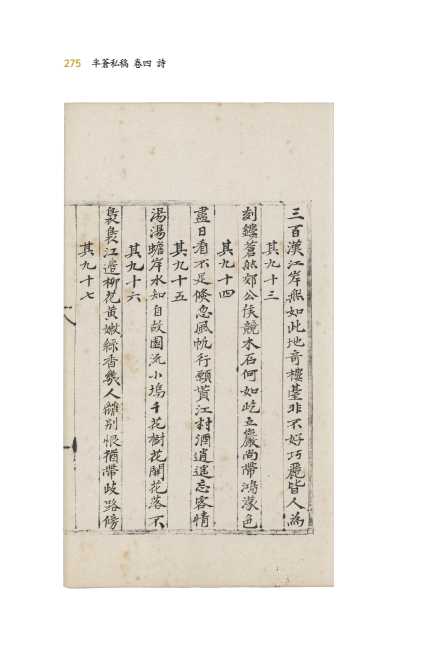 275 半蒼私稿 卷四 詩
三百漢江岸無如此地奇樓臺非不好巧麗皆人為
其九十三
刻鏤蒼然郊公侯競木石何如屹立巖尚帶鴻濛色
其九十四
盡日看不足倏忽風帆行飄簣江村酒逍遙忘客情
其九十五
湯湯蟾岸水知自故園流小塢千花樹花開花落不
其九十六
裊裊江邊柳花黃嫩綠香幾人離別恨猶帶歧路傍
其九十七